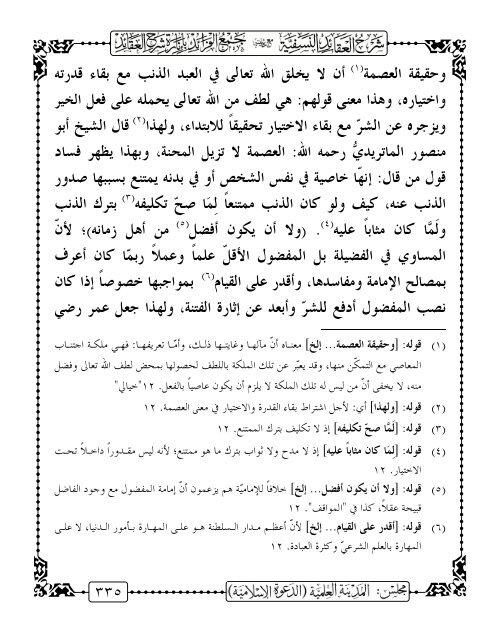 شرح العقائد النسفية مع جمع الفرائد بإنارة شرح العقائد
وحقيقة العصمة(١) أن لا يخلق الله تعالى في العبد الذنب مع بقاء قدرته
واختياره، وهذا معنى قولهم: هي لطف من الله تعالى يحمله على فعل الخير
ويزجره عن الشرّ مع بقاء الاختيار تحقيقاً للابتداء، ولهذا(٢) قال الشيخ أبو
منصور الماتريديُّ رحمه الله: العصمة لا تزيل المحنة، وبهذا يظهر فساد
قول من قال: إنّها خاصية في نفس الشخص أو في بدنه يمتنع بسببها صدور
الذنب عنه، كيف ولو كان الذنب ممتنعاً لِمَا صحّ تكليفه(٣) بترك الذنب
ولَمَّا كان مثاباً عليه(٤). (ولا أن يكون أفضل(٥) من أهل زمانه)؛ لأنّ
المساوي في الفضيلة بل المفضول الأقلّ علماً وعملاً ربمّا كان أعرف
بمصالح الإمامة ومفاسدها، وأقدر على القيام(٦) بمواجبها خصوصاً إذا كان
نصب المفضول أدفع للشرّ وأبعد عن إثارة الفتنة، ولهذا جعل عمر رضي
(١) قوله: [وحقيقة العصمة... إلخ] معناه أنّ مآلها وغايتها ذلك، وأمّا تعريفها: فهي ملكة اجتناب
المعاصي مع التمكّن منها، وقد يعبّر عن تلك الملكة باللطف لحصولها بمحض لطف الله تعالى وفضل
منه، لا يخفى أنّ من ليس له تلك الملكة لا يلزم أن يكون عاصياً بالفعل. ١٢ "خيالي"
(٢) قوله: [ولهذا] أي: لأجل اشتراط بقاء القدرة والاختيار في معنى العصمة. ١٢
(٣) قوله: [لَمَّا صحّ تكليفه] إذ لا تكليف بترك الممتنع. ١٢
(٤) قوله: [لِمَا كان مثاباً عليه] إذ لا مدح ولا ثواب بترك ما هو ممتنع؛ لأنه ليس مقدوراً داخلاً تحت
الاختيار. ١٢
(٥) قوله: [ولا أن يكون أفضل... إلخ] خلافاً للإماميّة هم يزعمون أنّ إمامة المفضول مع وجود الفاضل
قبيحة عقلاً، كذا في "المواقف". ١٢
(٦) قوله: [أقدر على القيام... إلخ] لأنّ أعظم مدار السلطنة هو على المهارة بأمور الدنيا، لا على
المهارة بالعلم الشرعيّ وكثرة العبادة. ١٢
مجلس: المدينة العلمية (الدعوة الإسلامية)
٣٣٥